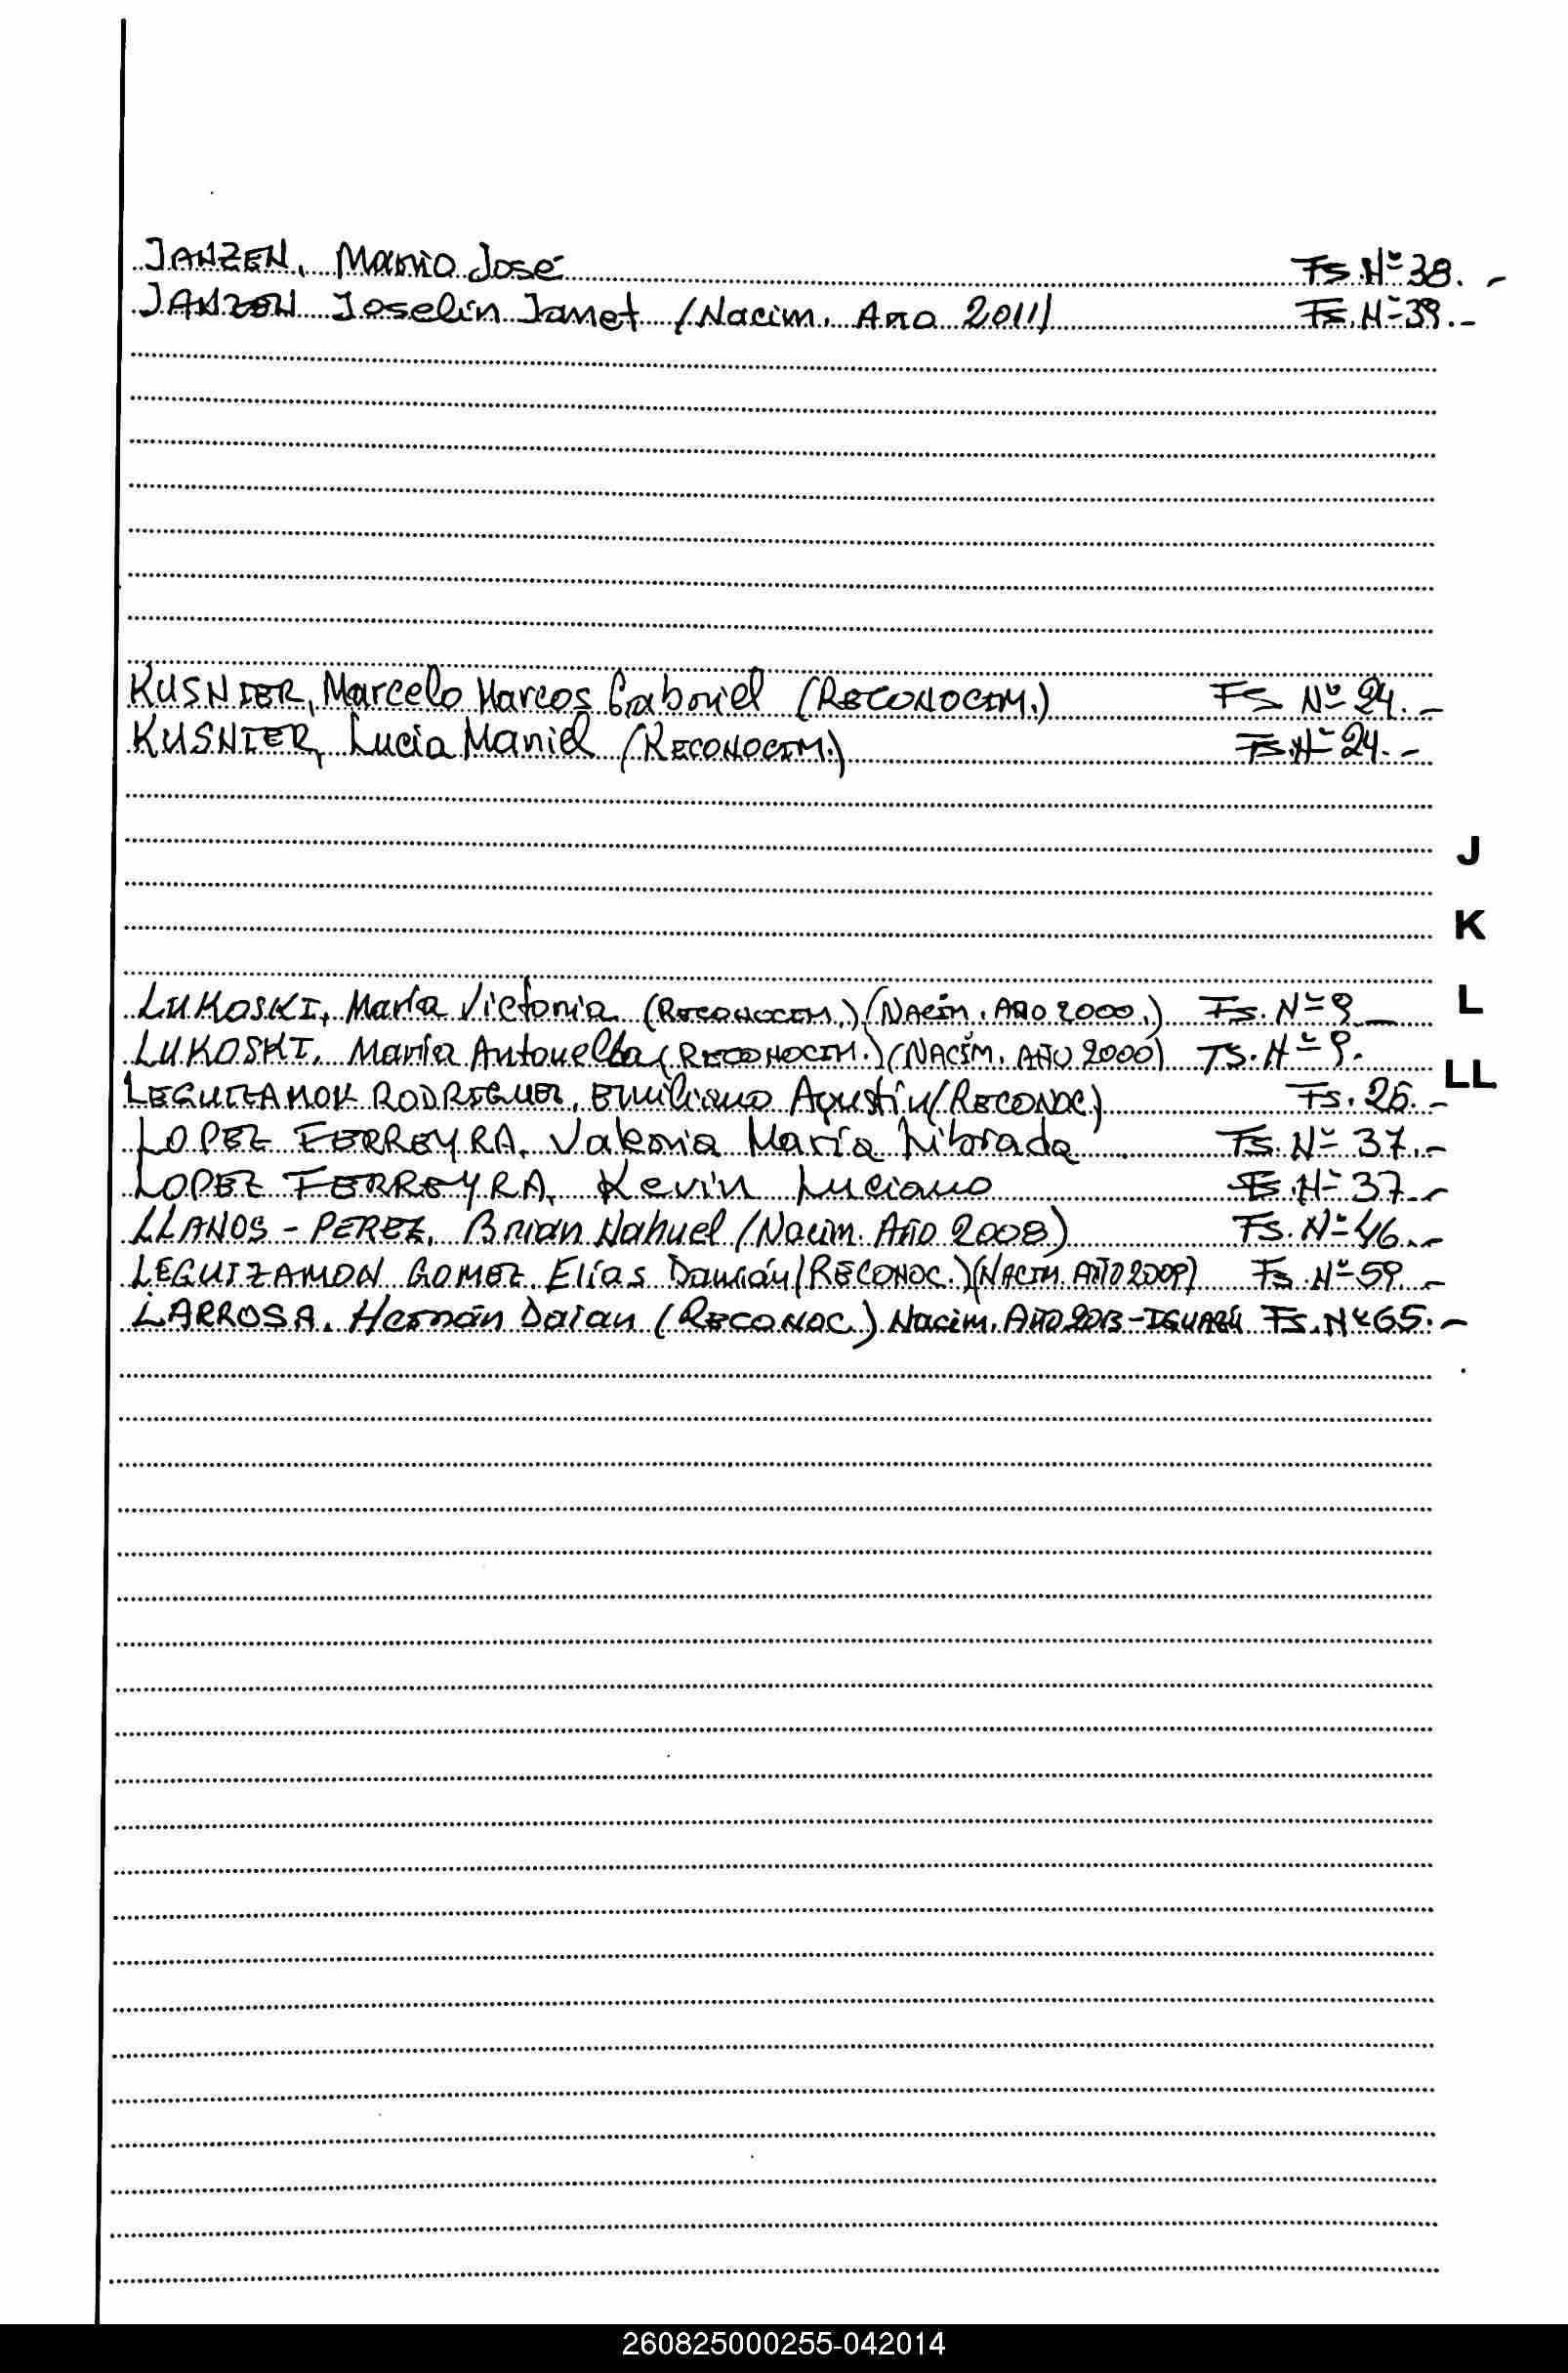 JANZEN, Mario José Fs. Nº 38.-
JANZEN Joselin Janet (Nacim. Año 2011) Fs. Nº 39.-
KUSNIER, Marcelo Marcos Gabriel (RECONOCIM.) FS Nº 24.-
KUSNIER, Lucia Mariel (RECONOCIM.) Fs. Nº 24.-
J
K
LUKOSKI, María Victoria (RECONOCIM.) (NACIM. AÑO 2000.) Fs. Nº 9 -
L
LUKOSKI, María Antonella (RECONOCIM.) (NACIM. AÑO 2000) FS. Nº 9.
LL
LEGUIZAMON RODRIGUEZ, Emiliano Agustín (RECONOC.) Fs. 26.-
LOPEZ FERREYRA, Valeria María Librada FS. Nº 37.-
LOPEZ FERREYRA, Kevin Luciano Fs. Nº 37.-
LLANOS - PEREZ, Brian Nahuel (Nacim. Año 2008) FS. Nº 46.-
LEGUIZAMON GOMEZ, Elías Damián (RECONOC.) (NACIM. AÑO 2009) Fs. Nº 59.-
LARROSA, Hernán Daian (RECONOC.) Nacim. AÑO 2013 - IGUAZÚ Fs. Nº 65.-
260825000255-042014